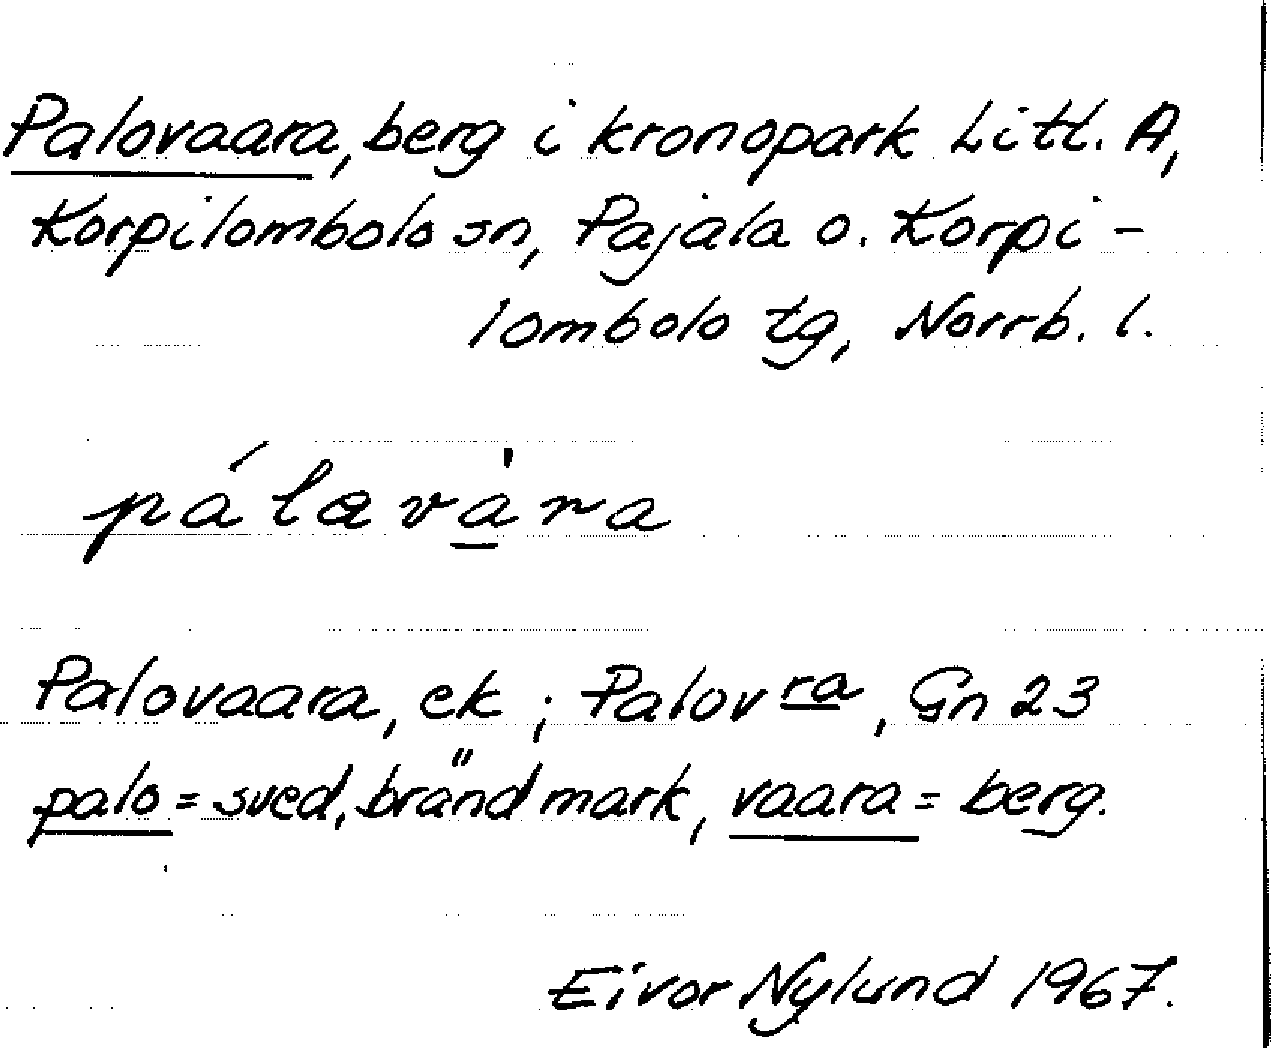 Palovaara, berg i kronopark Litt. A,
Korpilombolo sn, Pajala o. Korpi-
lombolo tg, Norrb. l.
pálavàra
Palovaara, ek; Palovra, Gn 23
palo = sved, bränd mark, vaara = berg.
Eivor Nylund 1967.